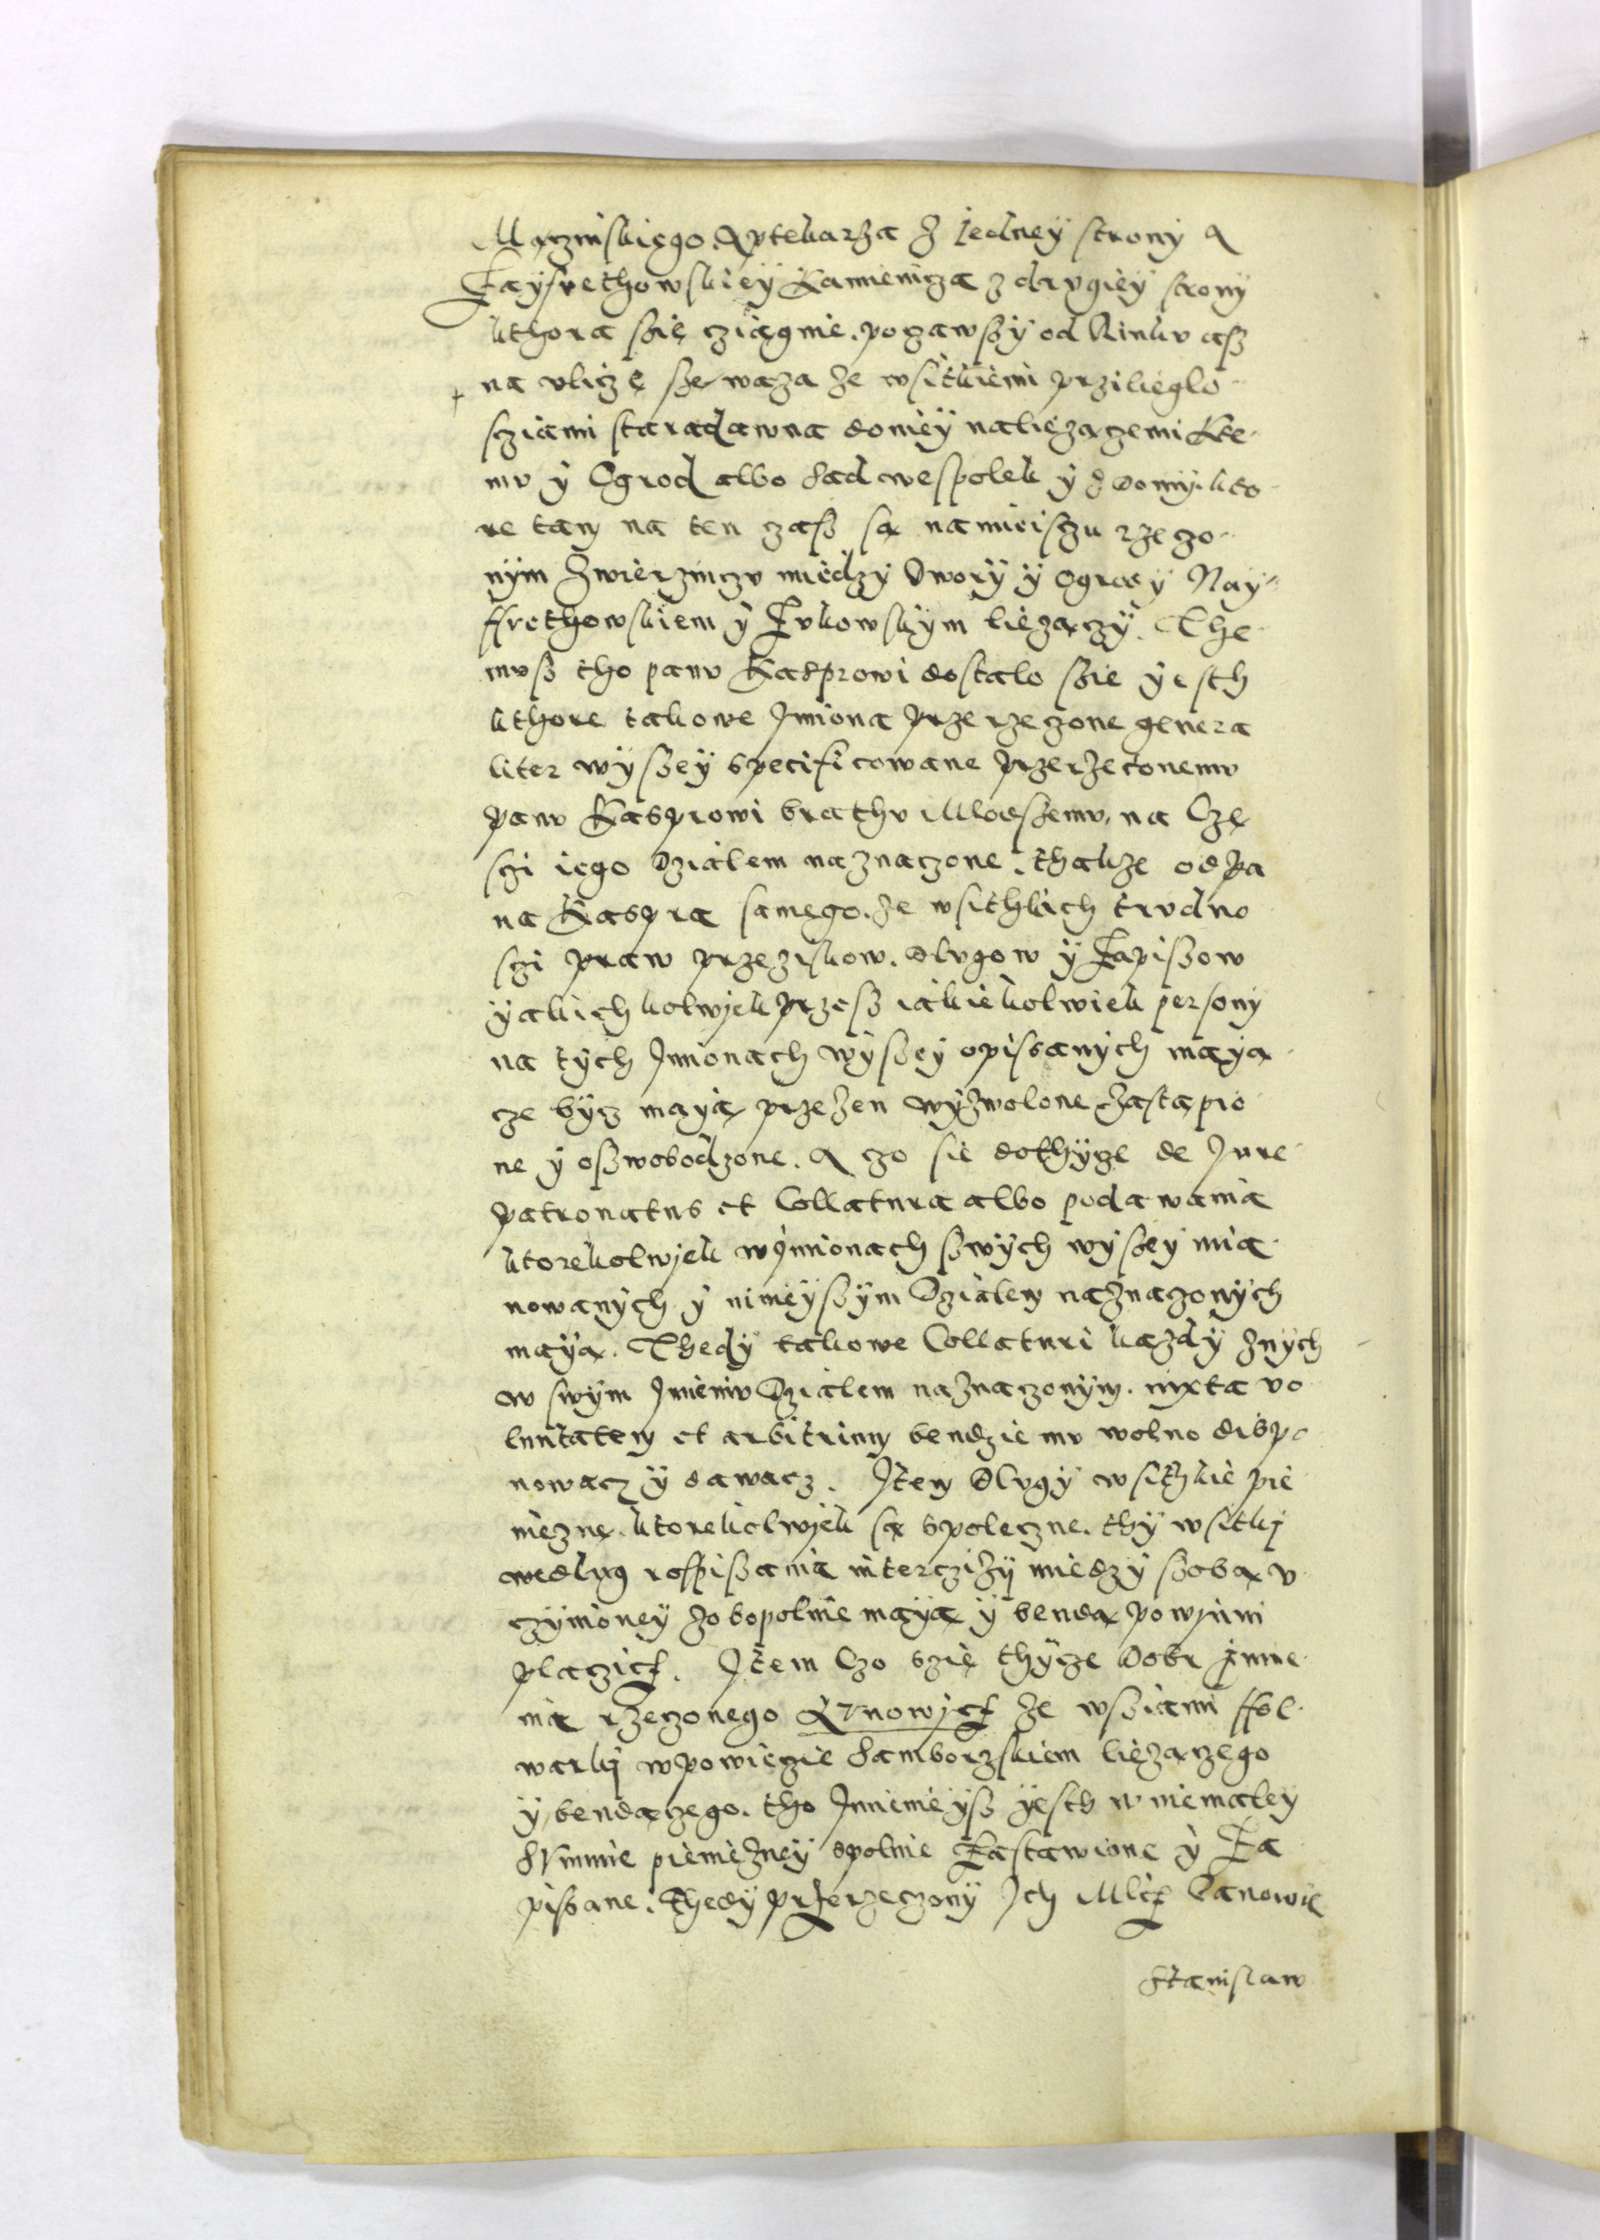 Mączinskiego Aptekarza Z iedney strony A
Zayfrethowskiey Kamienicza z drvgiey strony
kthora szie cziągnie. pozawszy od Rinkv asz
na vlicze Szewcza Ze wsitkiemi prziliegło
scziami staradawna doniey naliezaczemi Kte
mv y Ogrod albo Sad wespolek y z domy. kto
re tam na ten czasz są namieisczu rzeczo
nym Zwierzinczv miedzy Dwory y ogrody Nay
ffrethowskiem y Zvkowskym liezączy. The
mvsz tho panv Kasprowi dostalo szie yesth
kthore takowe Jmiona przerzeczone genera
liter wyszey specificowane przerzeconemv
panv Kasprowi brathv Mlodszemv, na Czę
sczi iego Dzialem naznaczone. thakze od Pa
na Kaspra samego. Ze wsithkich trvdno
sczi praw przeziskow. dlvgow y Zapiszow
yakich kolwjek przesz iakiekolwiek persony
na tych Jmionach wyszey opisanych maya
cze bycz mayą przezen wyzwolone Zastąpio
ne y oszwobodzone. A czo sie dothycze de Jure
patronatus et Collatura albo podawania
ktorekolwjek wymionach szwych wyszey mia
nowanych y ninieyszym Dzialem naznaczonych
mayą. Thedy takowe Collaturi kazdy znych
w swym Jmieniv Dzialem naznaczonym. iuxta vo
luntatem et arbitrium bendzie mv wolno dispo
nowacz y dawacz. Jtem Dlvgy wsithkie pie
niezne. ktorekolwjek są spoleczne. thy wsitkj
wedlvg rospisania interczizy miedzy szobą v
czynioney Zobopolnie mayą y bendą powjnni
placzicz. Jtem Czo szię thycze Dobr Jmie
nia rzeczonego Krvnowjcz Ze wsziami ffol
warkj wpowiezie Samborzskiem liezaczego
y bendaczego. tho Jmienie ysz yesth w niemaley
Svmmie pienięzney spolnie Zastawione y Za
pisane. Thedy przerzeczony Jch Mlcz Panowie
Stanislaw